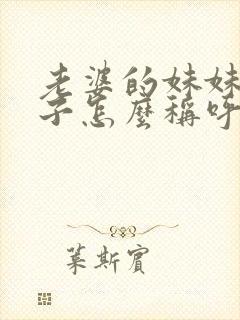 老婆的妹妹
子怎麼稱呼
葉斯賓